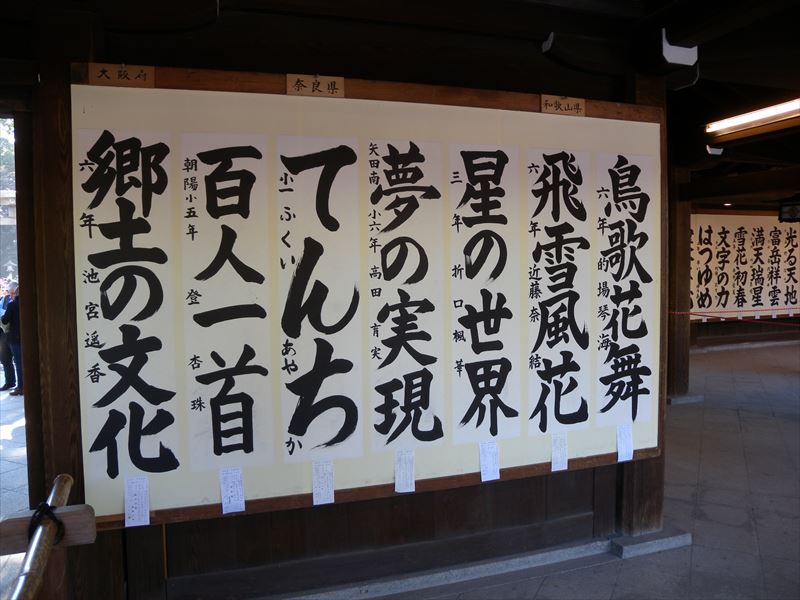 光る天地
富岳祥雲
満天瑞星
雪花初春
文字の力
はつゆめ
和歌山県
鳥歌花舞
六年 的場琴海
飛雪風花
六年 近藤奈結
星の世界
三年 折口楓華
奈良県
夢の実現
矢田南小六年 高田育実
てんち
小一 ふくい あやか
大阪府
百人一首
朝陽小五年 登杏珠
郷土の文化
六年 池宮遥香